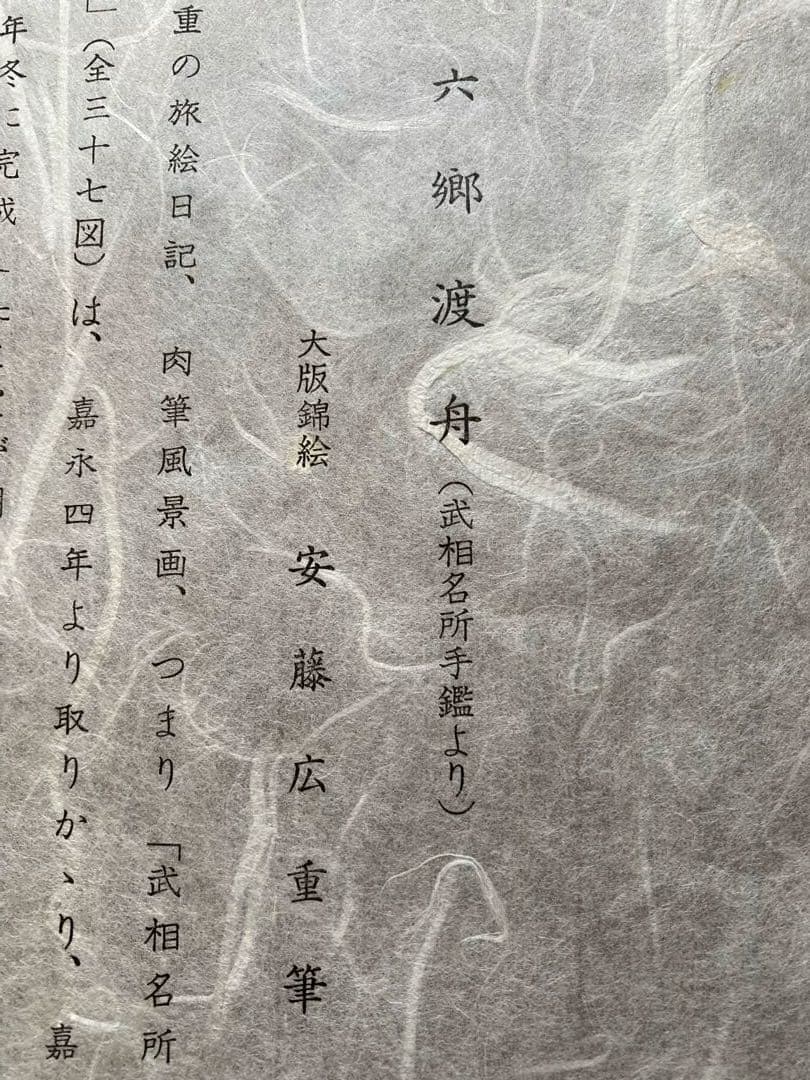 六郷渡舟（武相名所手鑑より）
大版錦絵　安藤広重筆
重の旅絵日記、肉筆風景画、つまり「武相名所
」（全三十七図）は、嘉永四年より取りかゝり、嘉
年冬に完成